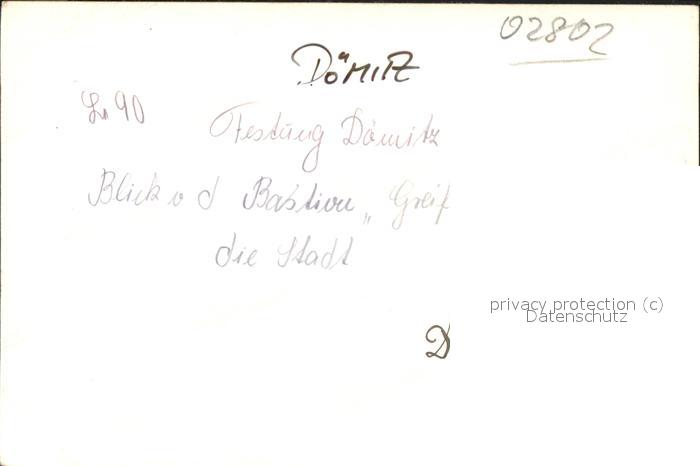 02802
DÖMITZ
90
Festung Dömitz
Blick v d Bastion „ Greif
die Stadt
privacy protection (c)
Datenschutz
D